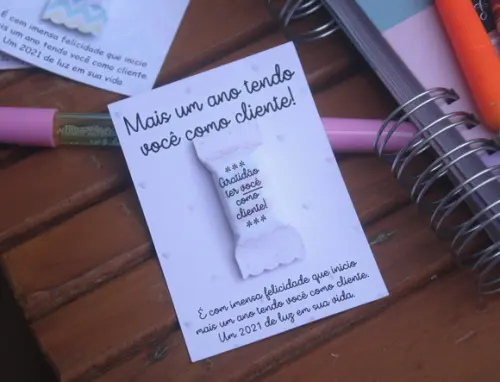 É com imensa felicidade que inicio
mais um ano tendo você como cliente.
Um 2021 de luz em sua vida.
Mais um ano tendo
você como cliente!
***
Gratidão
ter você
como
cliente!
***
É com imensa felicidade que inicio
mais um ano tendo você como cliente.
Um 2021 de luz em sua vida.